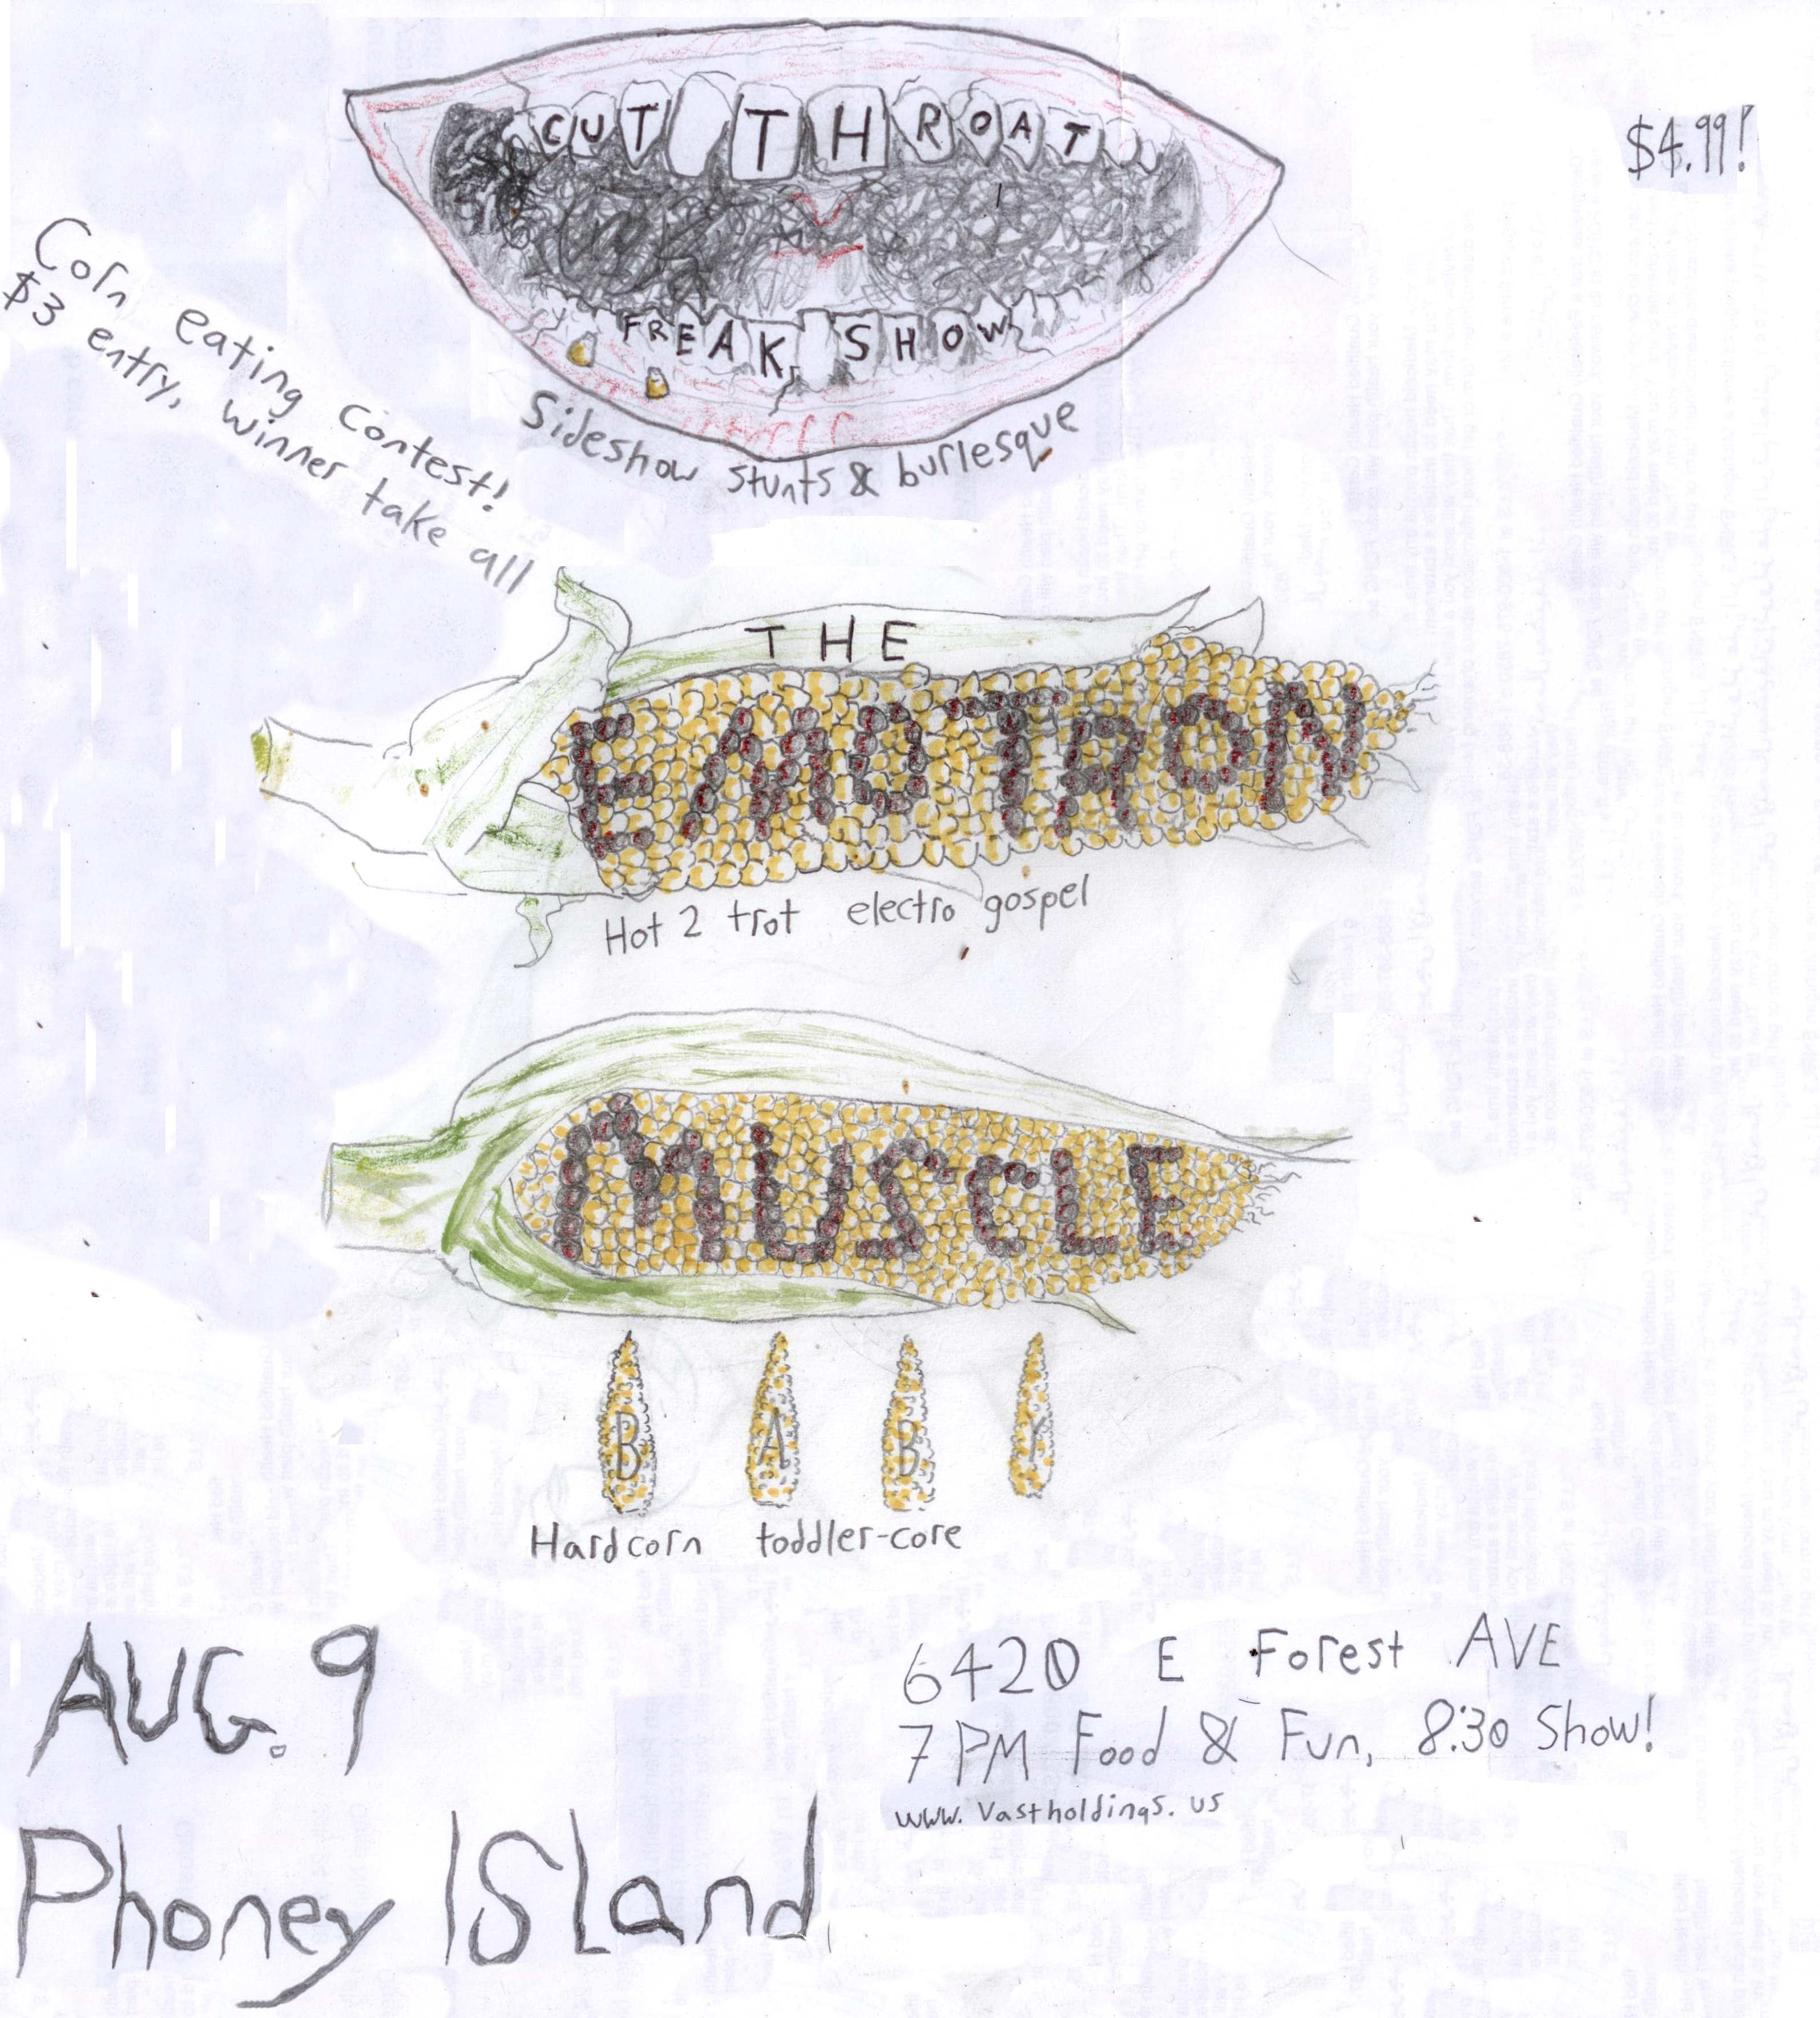 CUT THROAT
$4.99!
FREAK SHOW
Sideshow stunts & burlesque
Corn eating contest!
$3 entry, winner take all
THE
EMOTRON
Hot 2 trot electro gospel
MUSCLE
BABY
Hardcorn toddler-core
AUG. 9
Phoney ISland
6420 E Forest AVE
7 PM Food & Fun, 8:30 Show!
www.Vastholdings.us